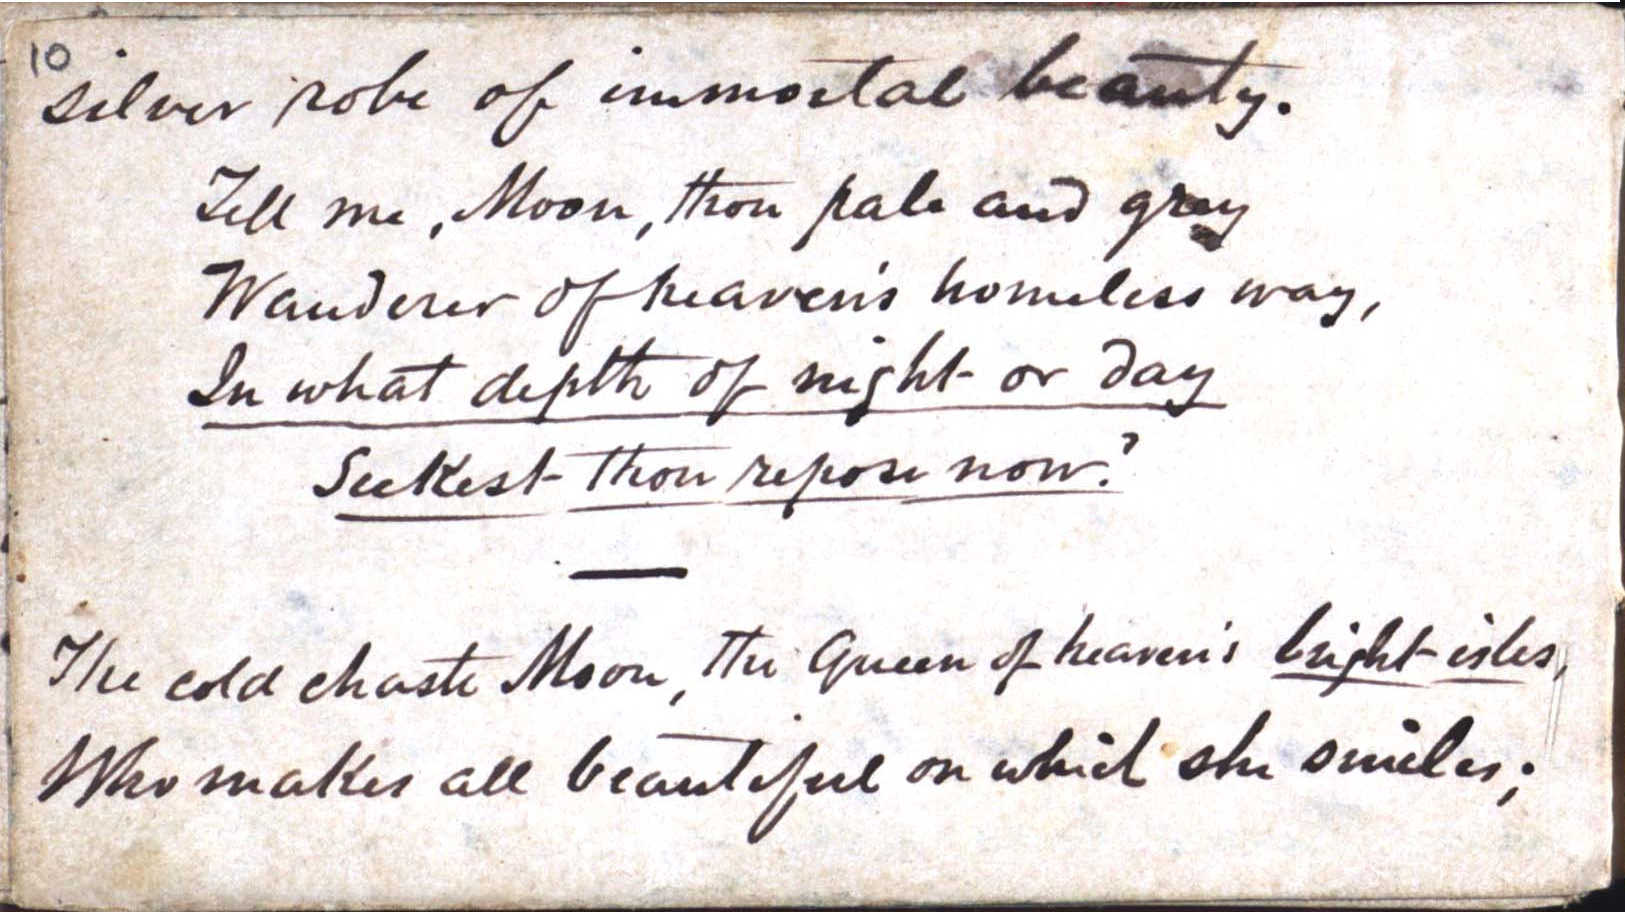 10
silver robe of immortal beauty.
Tell me, Moon, thou pale and grey
Wanderer of heaven's homeless way,
In what depth of night or day
Seekest thou repose now?
The cold chaste Moon, the Queen of heaven's bright isles,
Who makes all beautiful on which she smiles;